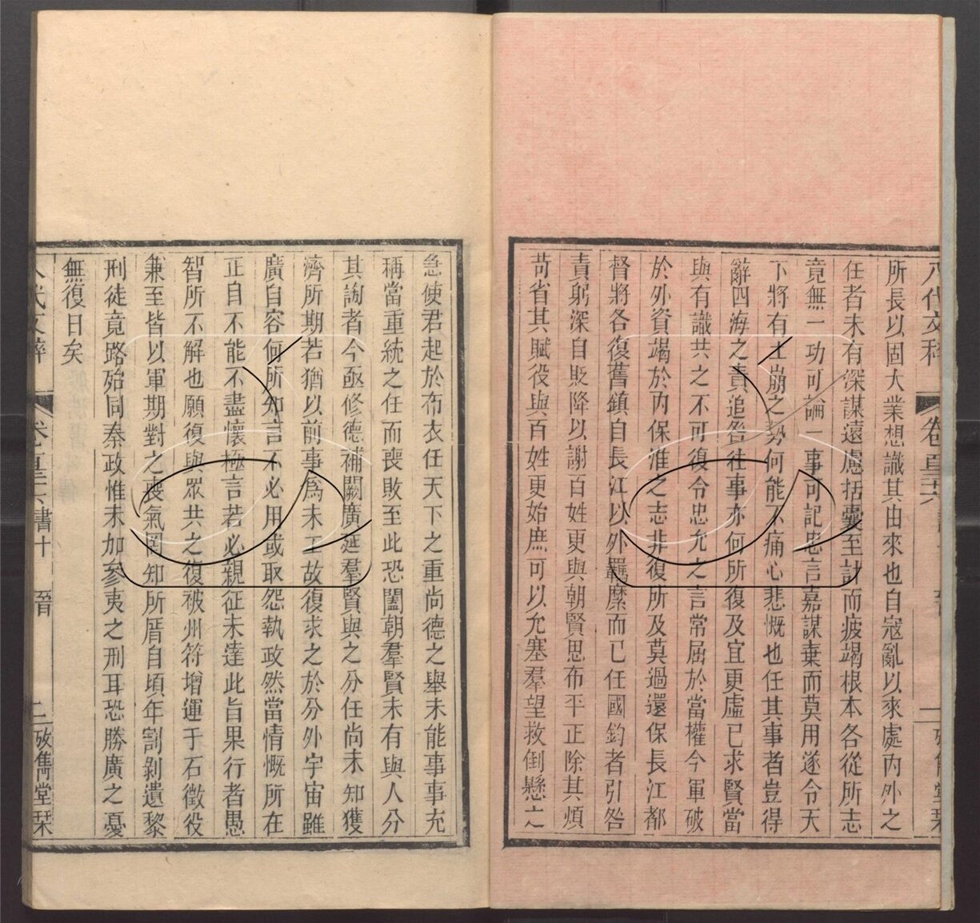 所長以固大業想識其由來也自寇亂以來處內外之
任者未有深謀遠慮括囊至計而疲竭根本各從所志
竟無一功可論一事可記忠言嘉謀棄而莫用遂令天
下將有土崩之勢何能不痛心悲慨也任其事者豈得
辭四海之責追咎往事亦何所復及宜更虛已求賢當
與有識共之不可復令忠允之言常屈於當權今軍破
於外資竭於內保淮之志非復所及莫過還保長江都
督將各復舊鎮自長江以外羈縻而已任國鈞者引咎
責躬深自貶降以謝百姓更與朝賢思布平正除其煩
苛省其賦役與百姓更始庶可以允塞羣望救倒懸之
急使君起於布衣任天下之重尚德之舉未能事事允
稱當重統之任而喪敗至此恐闔朝羣賢未有與人分
其謗者今亟修德補闕廣延羣賢與之分任尚未知獲
濟所期若猶以前事爲未工故復求之於分外宇宙雖
廣自容何所知言不必用或取怨執政然當情慨所在
正自不能不盡懷極言若必親征未達此旨果行者愚
智所不解也願復與眾共之復被州符增運千石徵役
兼至皆以軍期對之喪氣罔知所厝自頃年割剝遺黎
刑徒竟路殆同秦政惟未加參夷之刑耳恐勝廣之憂
無復日矣
八代文粹
書十
晉
二
攷雋堂栞